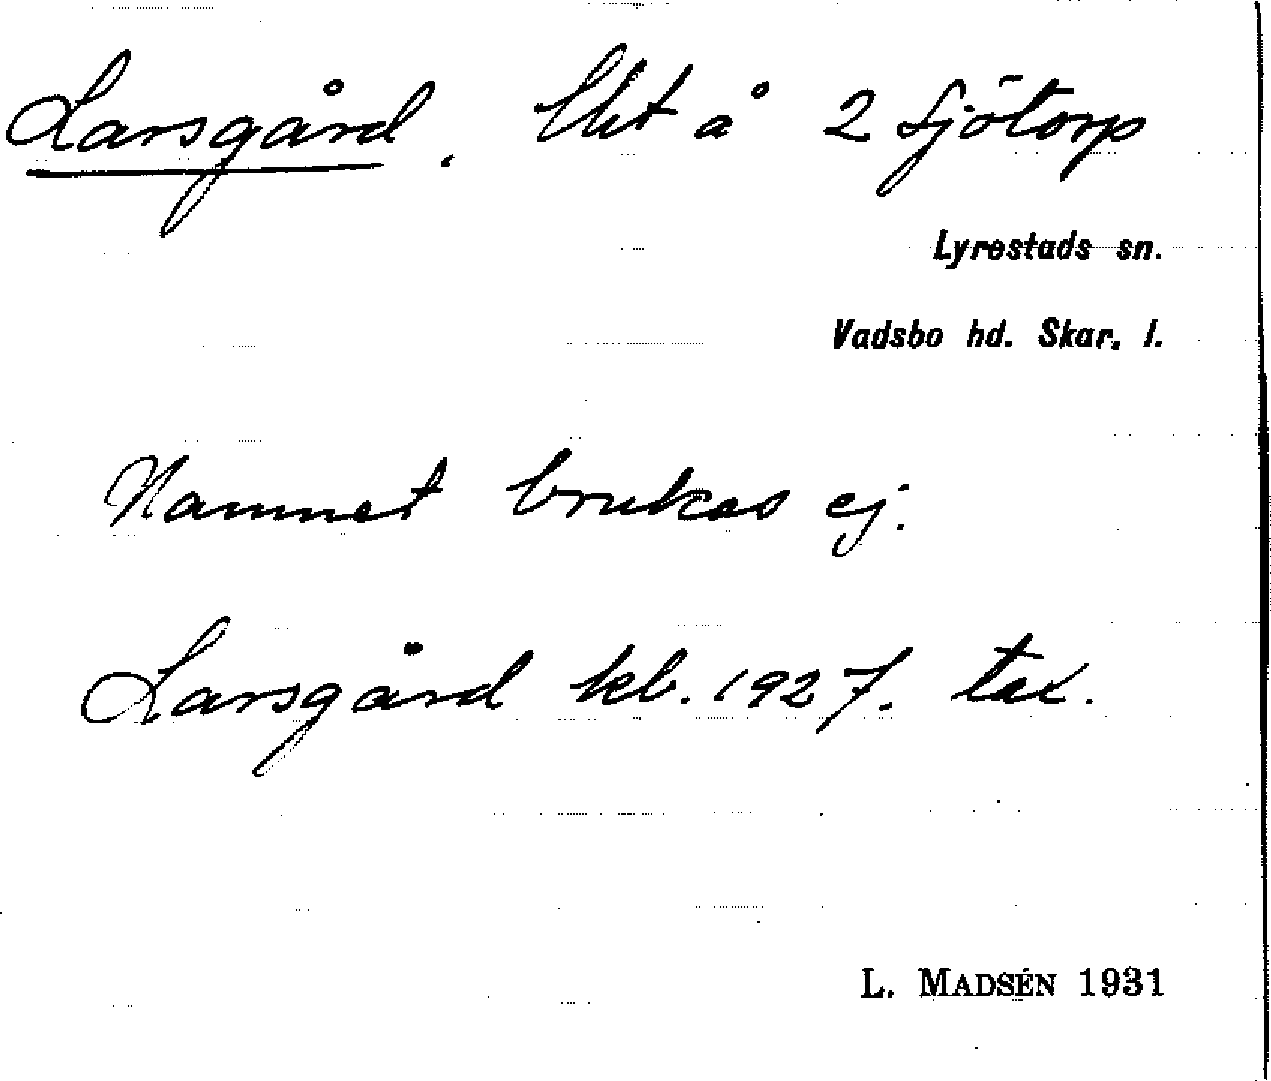 Larsgård. Uht å 2 Sjötorp
Lyrestads sn.
Vadsbo hd. Skar. l.
Namnet brukas ej.
Larsgård kb. 1927. tax.
L. MADSÉN 1931